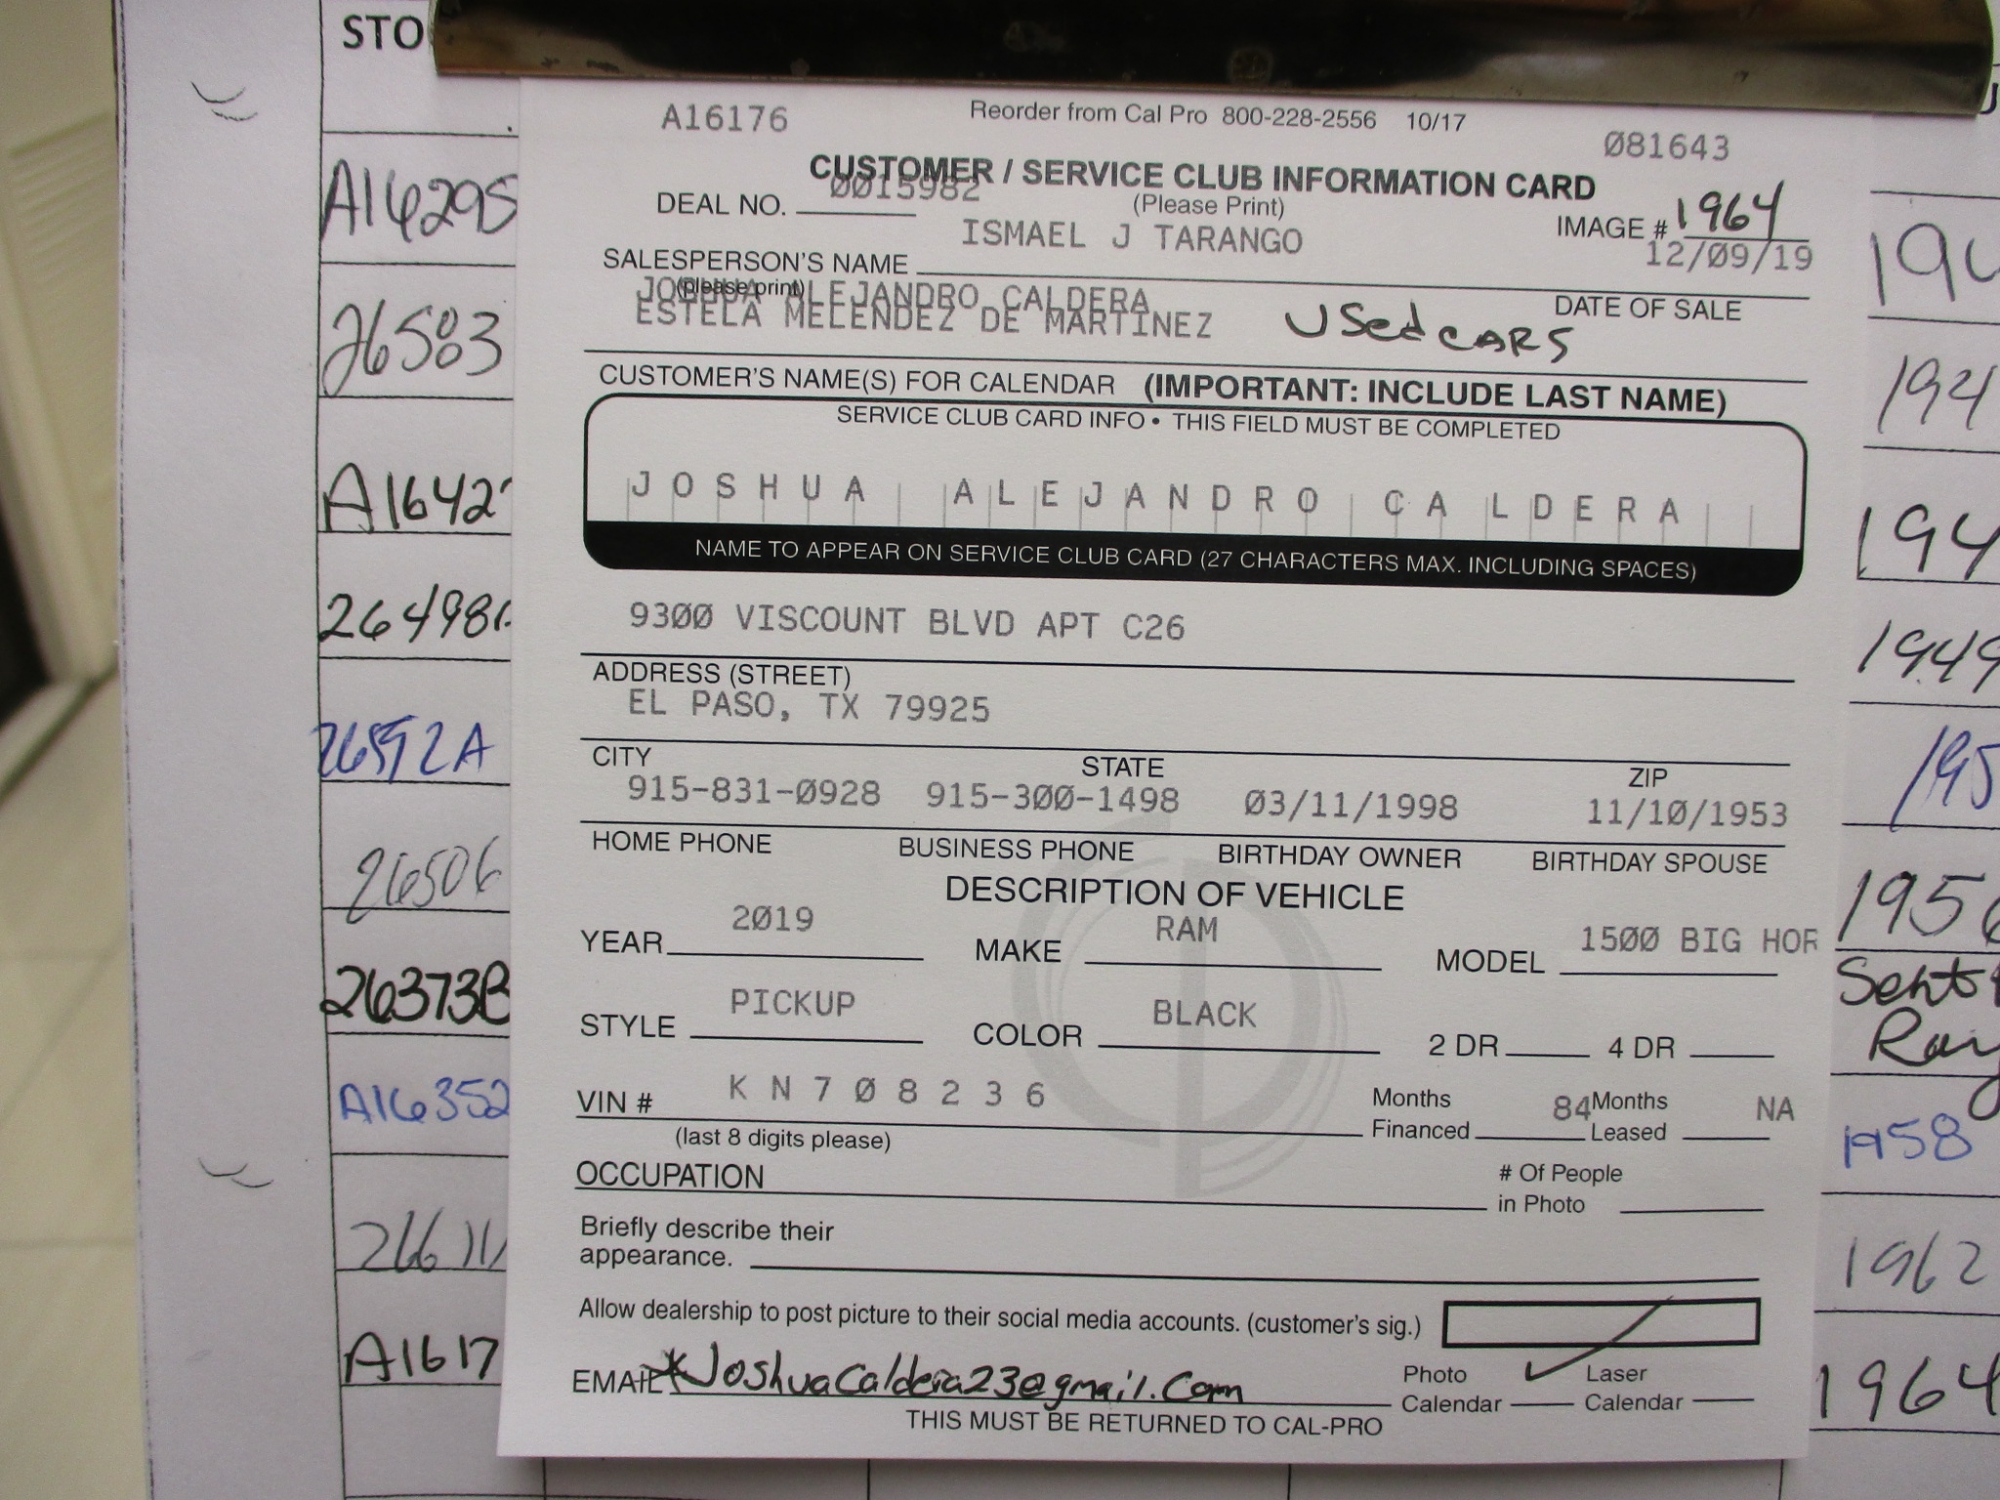 STO
A16176 Reorder from Cal Pro 800-228-2556 10/17 081643
CUSTOMER / SERVICE CLUB INFORMATION CARD
DEAL NO. 0015982 (Please Print) IMAGE # 1964
SALESPERSON'S NAME ISMAEL J TARANGO 12/09/19
(please print) DATE OF SALE
JOSHUA ALEJANDRO CALDERA
ESTELA MELENDEZ DE MARTINEZ Used CARS
CUSTOMER'S NAME(S) FOR CALENDAR (IMPORTANT: INCLUDE LAST NAME)
SERVICE CLUB CARD INFO • THIS FIELD MUST BE COMPLETED
JOSHUA ALEJANDRO CALDERA
NAME TO APPEAR ON SERVICE CLUB CARD (27 CHARACTERS MAX. INCLUDING SPACES)
9300 VISCOUNT BLVD APT C26
ADDRESS (STREET)
EL PASO, TX 79925
CITY STATE ZIP
915-831-0928 915-300-1498 03/11/1998 11/10/1953
HOME PHONE BUSINESS PHONE BIRTHDAY OWNER BIRTHDAY SPOUSE
DESCRIPTION OF VEHICLE
YEAR 2019 MAKE RAM MODEL 1500 BIG HOR
STYLE PICKUP COLOR BLACK 2 DR 4 DR
VIN # KN708236 Months Financed 84 Months Leased NA
(last 8 digits please)
OCCUPATION # Of People in Photo
Briefly describe their
appearance.
Allow dealership to post picture to their social media accounts. (customer's sig.)
EMAIL *JoshuaCaldera23@gmail.com Photo Calendar Laser Calendar
THIS MUST BE RETURNED TO CAL-PRO
A16295
26503
A1642
26498
26592A
26506
26373B
A16352
A1617
194
194
1949
195
195
Sent
Ray
1958
1962
1964